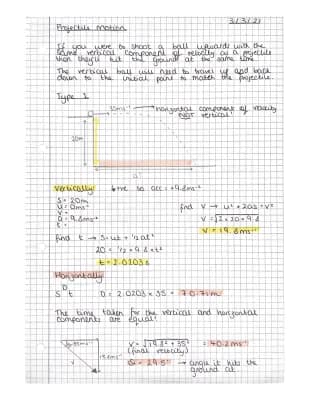 3/3/21
Projectile motion
If you were to shoot a ball upwards with the
same vertical component of velocity as a projectile
then they'll hit the ground at the same time.
The vertical ball will need to travel up and back
down to the initial point to match the projectile.
Type 1
35ms⁻¹ → horizontal component of velocity
NOT vertical
20m
D
Vertically ↓+ve so acc = +9.8ms⁻²
S = 20m
u = 0ms⁻¹
v =
a = 9.8ms⁻²
t =
find v → u² + 2as = v²
v = √2 × 20 × 9.8
v = 19.8ms⁻¹
find t → S = ut + ½at²
20 = ½ × 9.8 × t²
t = 2.0203s
Horizontally
D
S t D = 2.0203 × 35 = 70.71m
The time taken for the vertical and horizontal
components are equal!
35ms⁻¹
19.8ms⁻¹
v
V = √19.8² + 35² = 40.2ms⁻¹
(final velocity)
θ = 29.5° → angle it hits the
ground at.